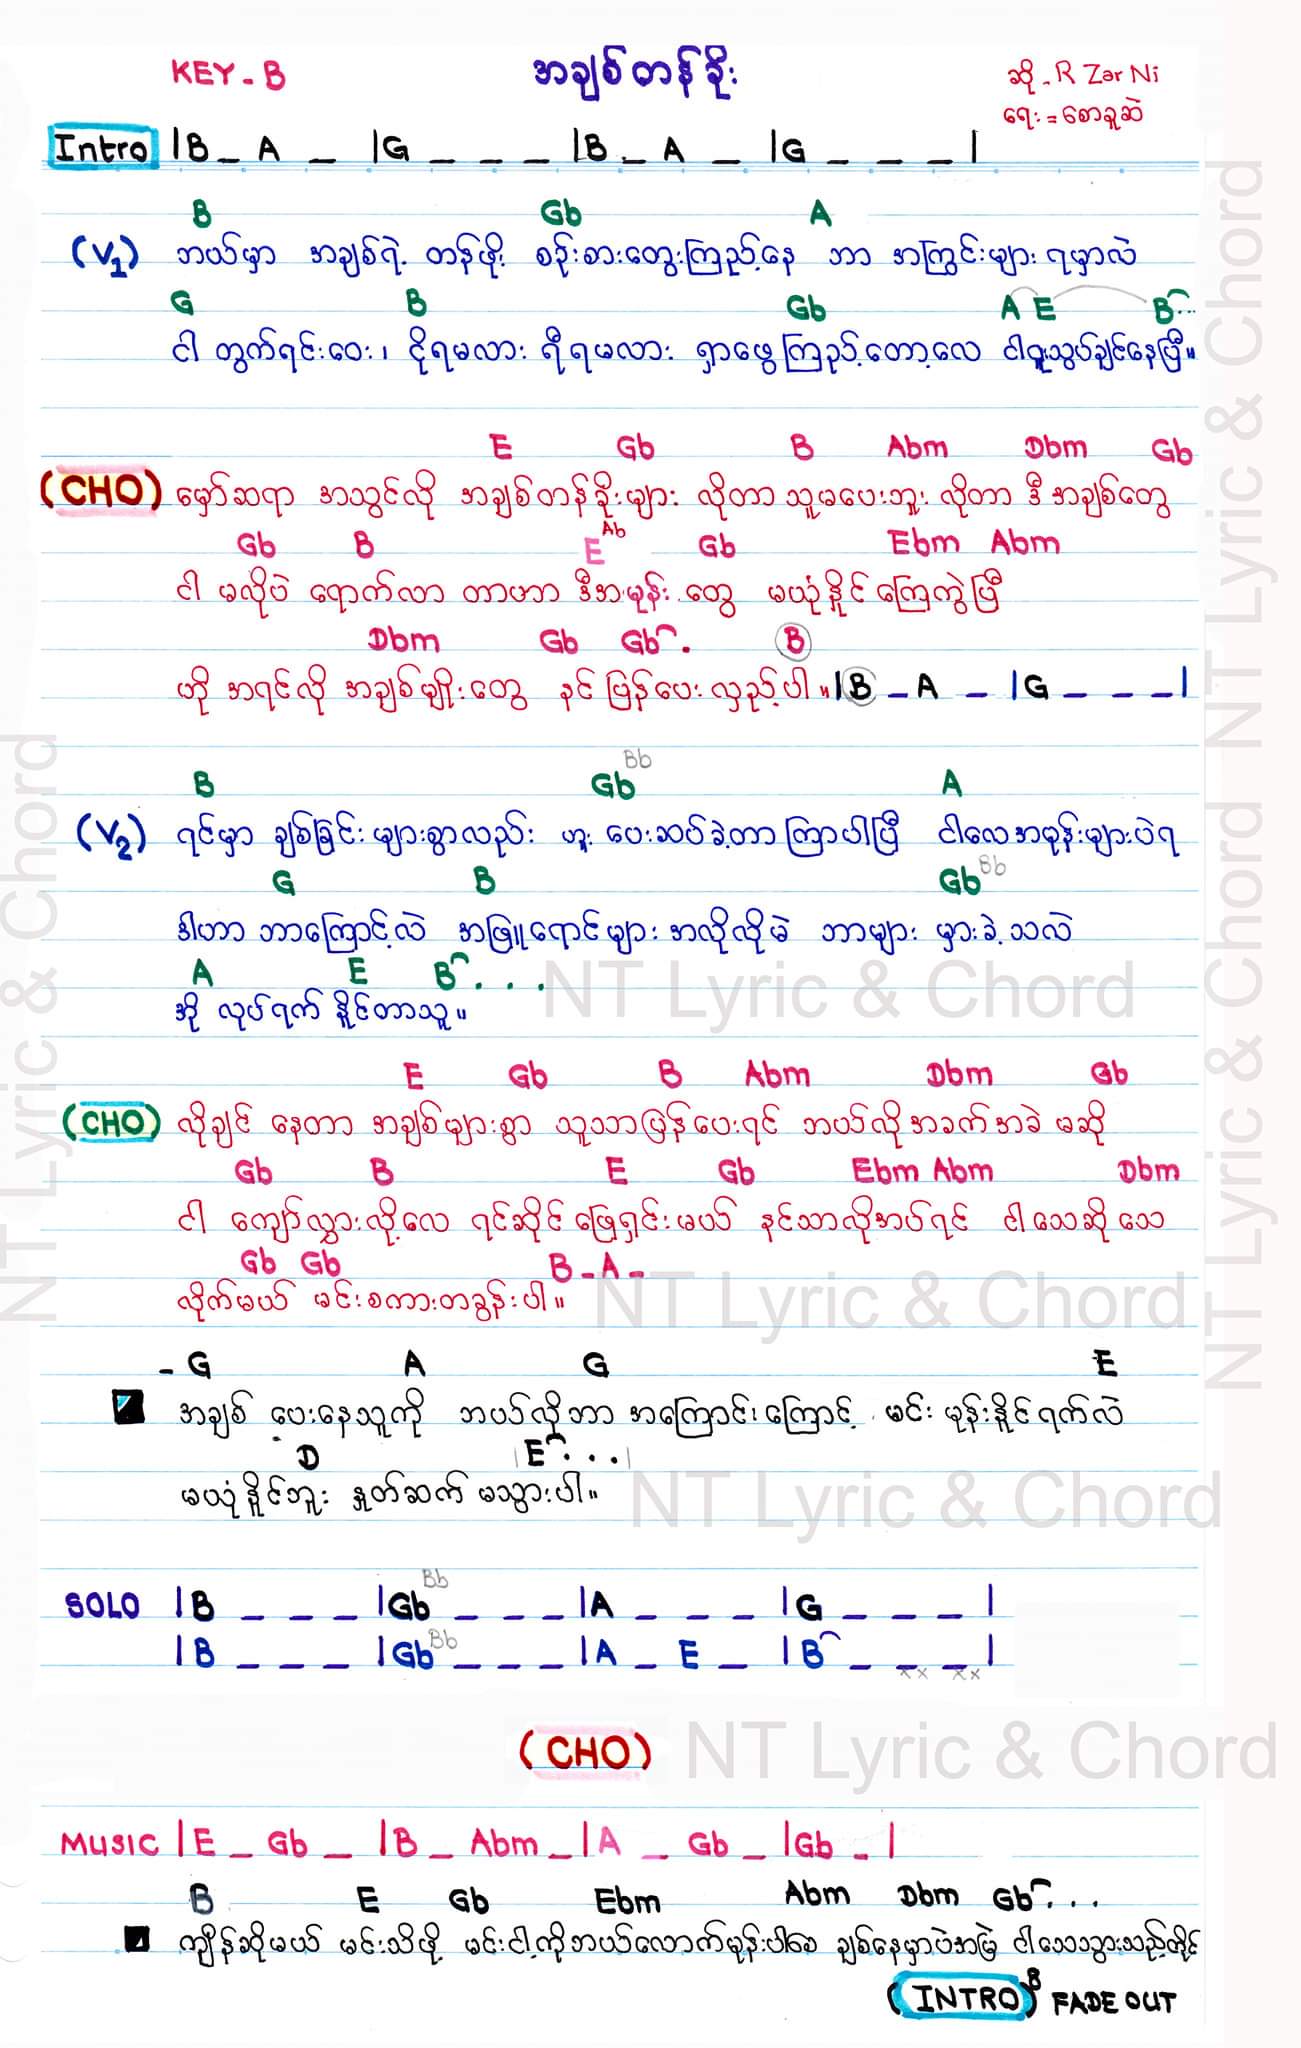 KEY - B
အချစ်တန်ခိုး
ဆို - R Zar Ni
ရေး = စောခူဆဲ
Intro |B _ A _ |G _ _ _ |B _ A _ |G _ _ _ |
B Gb A
(V1) ဘယ်မှာ အချစ်ရဲ့ တန်ဖိုး စဉ်းစားတွေးကြည့်နေ ဘာ အကြွင်းများ ရမှာလဲ
G B Gb A E B...
ငါ တွက်ရင်းဝေး၊ ငိုရမလား ရီရမလား ရှာဖွေကြည့်တော့လေ ငါရူးသွပ်ချင်နေပြီ။
E Gb B Abm Dbm Gb
(CHO) မှော်ဆရာ အသွင်လို အချစ်တန်ခိုးများ လိုတာ သူမပေးဘူး လိုတာ ဒီအချစ်တွေ
Gb B E Ab Gb Ebm Abm
ငါ မလိုပဲ ရောက်လာ တာဟာ ဒီအမုန်း တွေ မယုံနိုင် ကြေကွဲပြီ
Dbm Gb Gb. B
ဟို အရင်လို အချစ်မျိုးတွေ နင် ပြန်ပေး လှည့်ပါ။ |B _ A _ |G _ _ _ |
B Gb Bb A
(V2) ရင်မှာ ချစ်ခြင်း များစွာလည်း ဟူး ပေးဆပ်ခဲ့တာ ကြာပါပြီ ငါလေအမုန်းများပဲရ
G B Gb Bb
ဒါဟာ ဘာကြောင့်လဲ အဖြူရောင်များ အလိုလိုမဲ ဘာများ မှားခဲ့သလဲ
A E B . . .
အို လုပ်ရက် နိုင်တာသူ။
E Gb B Abm Dbm Gb
(CHO) လိုချင် နေတာ အချစ်များစွာ သူသာပြန်ပေးရင် ဘယ်လိုအခက်အခဲ မဆို
Gb B E Gb Ebm Abm Dbm
ငါ ကျော်လွှားလို့လေ ရင်ဆိုင် ဖြေရှင်းမယ် နင်သာလိုအပ်ရင် ငါသေဆို သေ
Gb Gb B - A -
လိုက်မယ် မင်းစကားတခွန်းပါ။
- G A G E
အချစ် ပေးနေသူကို ဘယ်လိုဘာ အကြောင်းကြောင့် မင်း မုန်းနိုင်ရက်လဲ
D |E . . . |
မယုံနိုင်ဘူး နှုတ်ဆက် မသွားပါ။
SOLO |B _ _ _ |Gb Bb _ _ _ |A _ _ _ |G _ _ _ |
|B _ _ _ |Gb Bb _ _ _ |A _ E _ |B _ _ _ |
x x x x
(CHO)
MUSIC |E _ Gb _ |B _ Abm _ |A _ Gb _ |Gb _ |
B E Gb Ebm Abm Dbm Gb . . .
ကျိန်ဆိုမယ် မင်းသိဖို့ မင်းငါ့ကိုဘယ်လောက်မုန်းပါစေ ချစ်နေမှာပဲအမြဲ ငါသေသွားသည့်တိုင်
(INTRO) B FADE OUT
NT Lyric & Chord
NT Lyric & Chord
NT Lyric & Chord
NT Lyric & Chord
NT Lyric & Chord
NT Lyric & Chord
NT Lyric & Chord